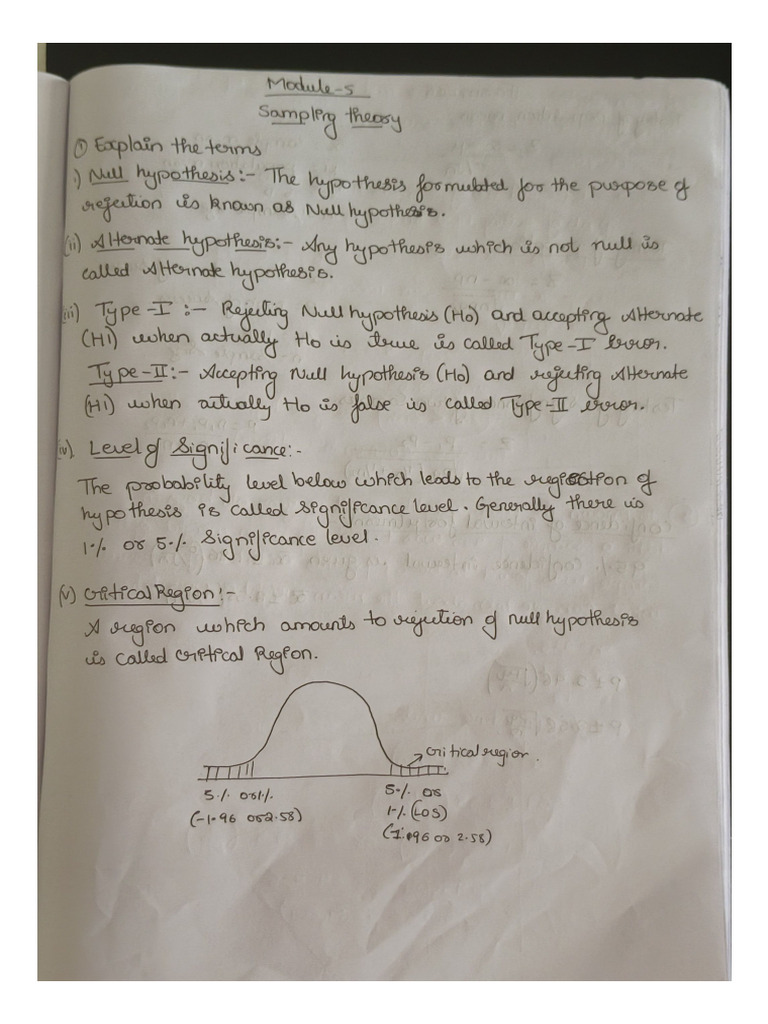 Module-5
Sampling theory
① Explain the terms
i) Null hypothesis:- The hypothesis formulated for the purpose of
rejection is known as Null hypothesis.
(ii) Alternate hypothesis:- Any hypothesis which is not null is
called Alternate hypothesis.
iii) Type-I :- Rejecting Null hypothesis (H0) and accepting Alternate
(H1) when actually H0 is true is called Type-I Error.
Type-II:- Accepting Null hypothesis (H0) and rejecting Alternate
(H1) when actually H0 is false is called Type-II error.
iv) Level of Significance:-
The probability level below which leads to the regection of
hypothesis is called significance level. Generally there is
1% or 5% Significance level.
(v) Critical Region:-
A region which amounts to rejection of null hypothesis
is called Critical Region.
Critical region.
5% or 1% 5% or
(-1.96 or 2.58) 1% (LOS)
(1.96 or 2.58)